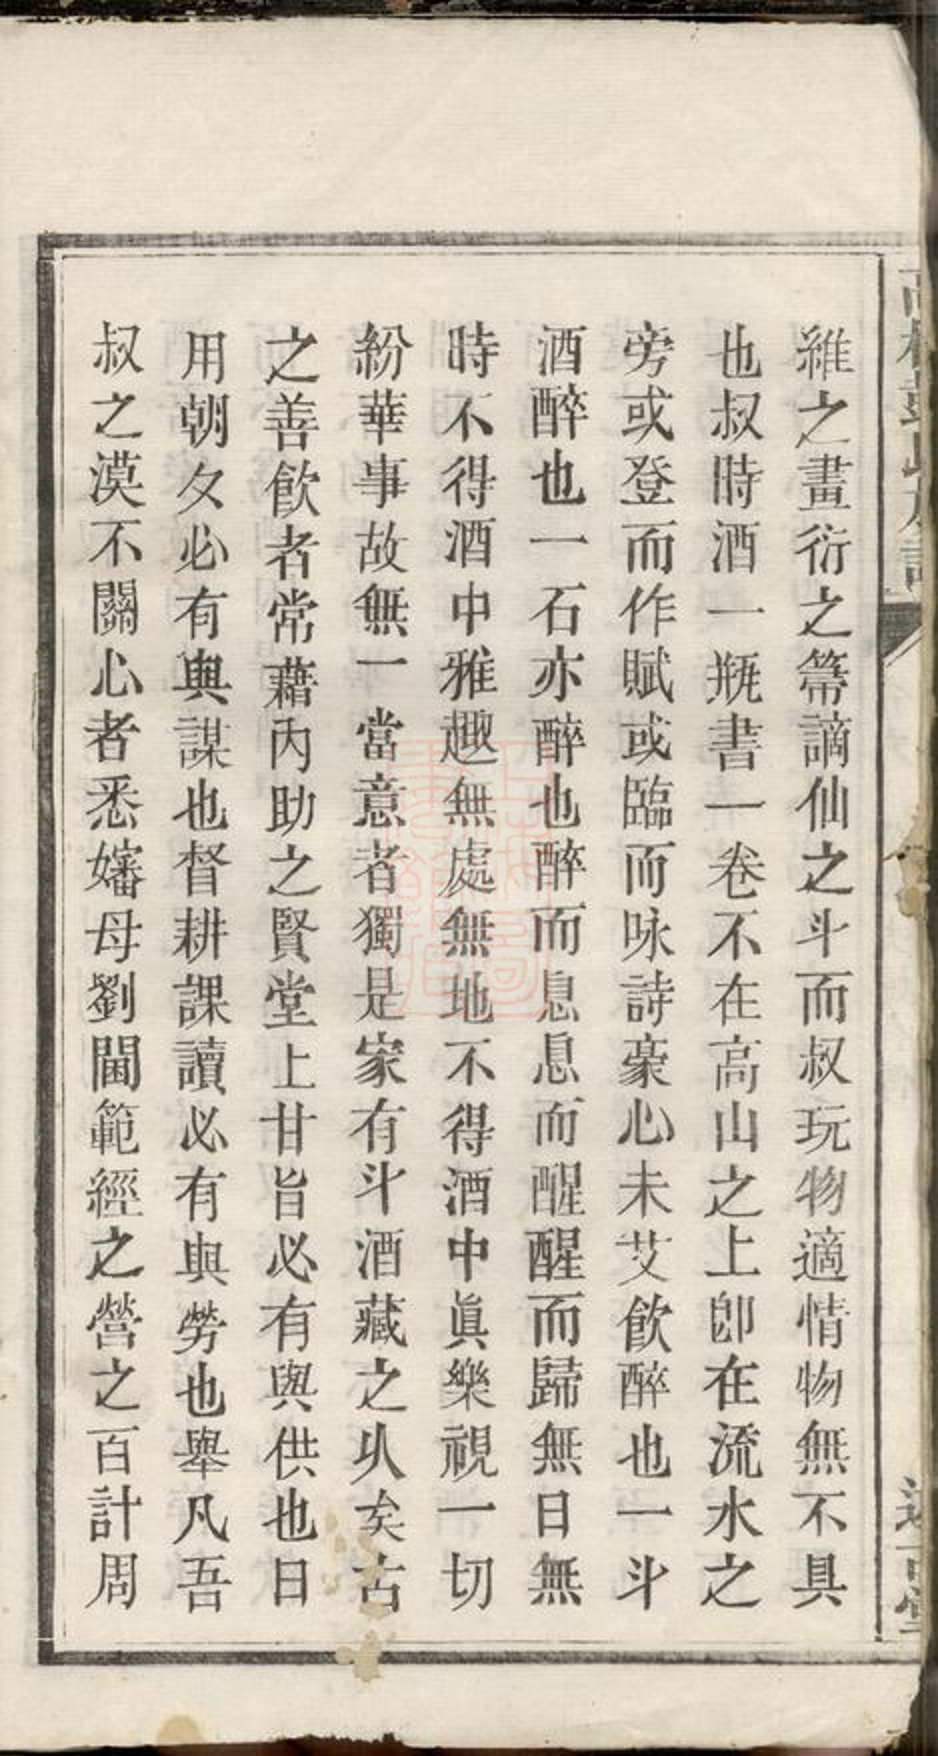 維之畫衍之篛謫仙之斗而叔玩物適情物無不具
也叔時酒一瓶書一卷不在高山之上卽在流水之
旁或登而作賦或臨而咏詩豪心未艾飮醉也一斗
酒醉也一石亦醉也醉而息息而醒醒而歸無日無
時不得酒中雅趣無處無地不得酒中眞樂視一切
紛華事故無一當意者獨是家有斗酒藏之乆矣古
之善飮者常藉內助之賢堂上甘旨必有與供也日
用朝夕必有與謀也督耕課讀必有與勞也舉凡吾
叔之漠不關心者悉嬸母劉閫範經之營之百計周